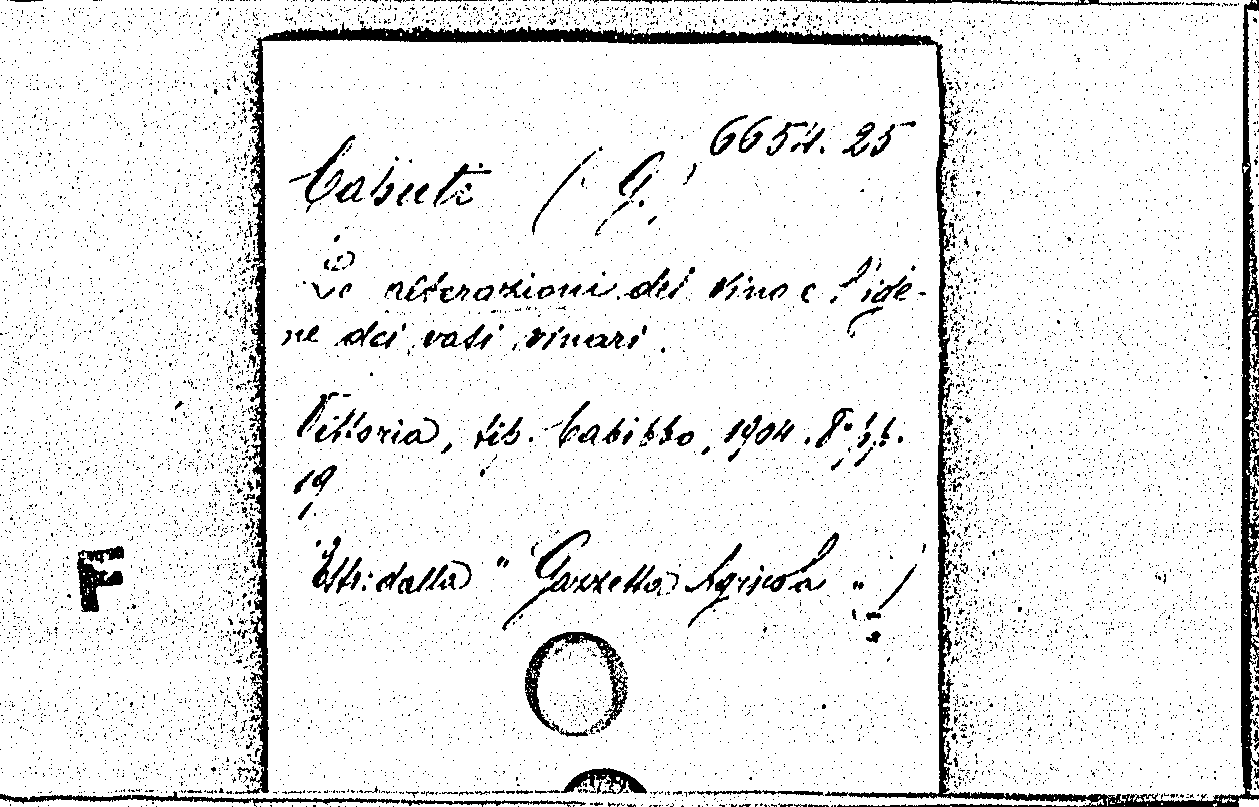 6654.25
Cabiuti (G.)
Le alterazioni del vino e l'igie-
ne dei vasi vinari.
Vittoria, tip. Cabibbo, 1904. 8° pp.
19
Estr: dalla "Gazzetta Agricola")
F